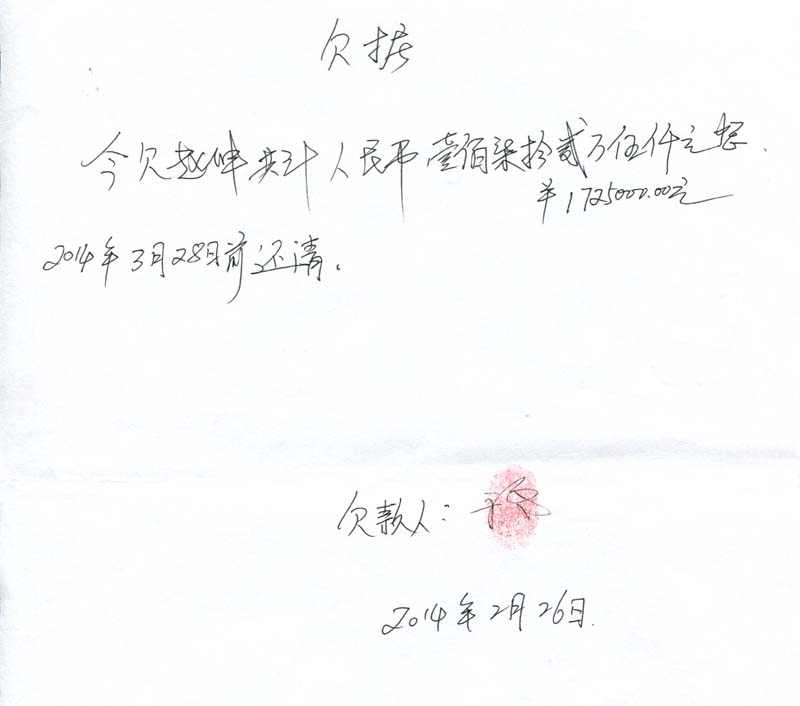 欠据
今欠赵坤共计人民币壹佰柒拾贰万伍仟元整.
¥1725000.00元
2014年3月28日前还清。
欠款人:
2014年2月26日.